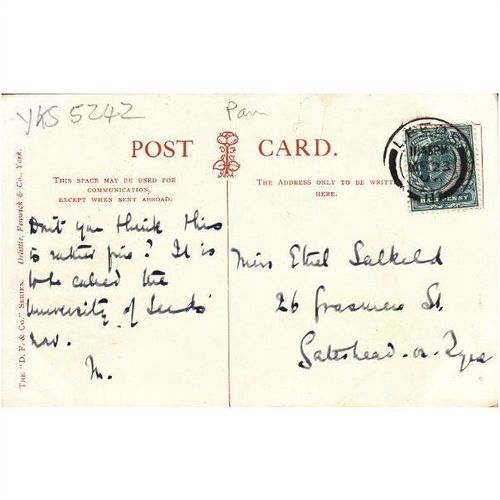 YKS 5242
Pam
POST CARD.
THIS SPACE MAY BE USED FOR
COMMUNICATION,
EXCEPT WHEN SENT ABROAD.
THE ADDRESS ONLY TO BE WRITTEN
HERE
THE "D. F. & CO." SERIES. Delittle, Fenwick & Co., York.
LEEDS
HALF PENNY
Don't you think this
is rather fine? It is
to be called the
University of Leeds
now.
M.
Miss Ethel Salkeld
26 Grasmere St.
Gateshead-on-Tyne